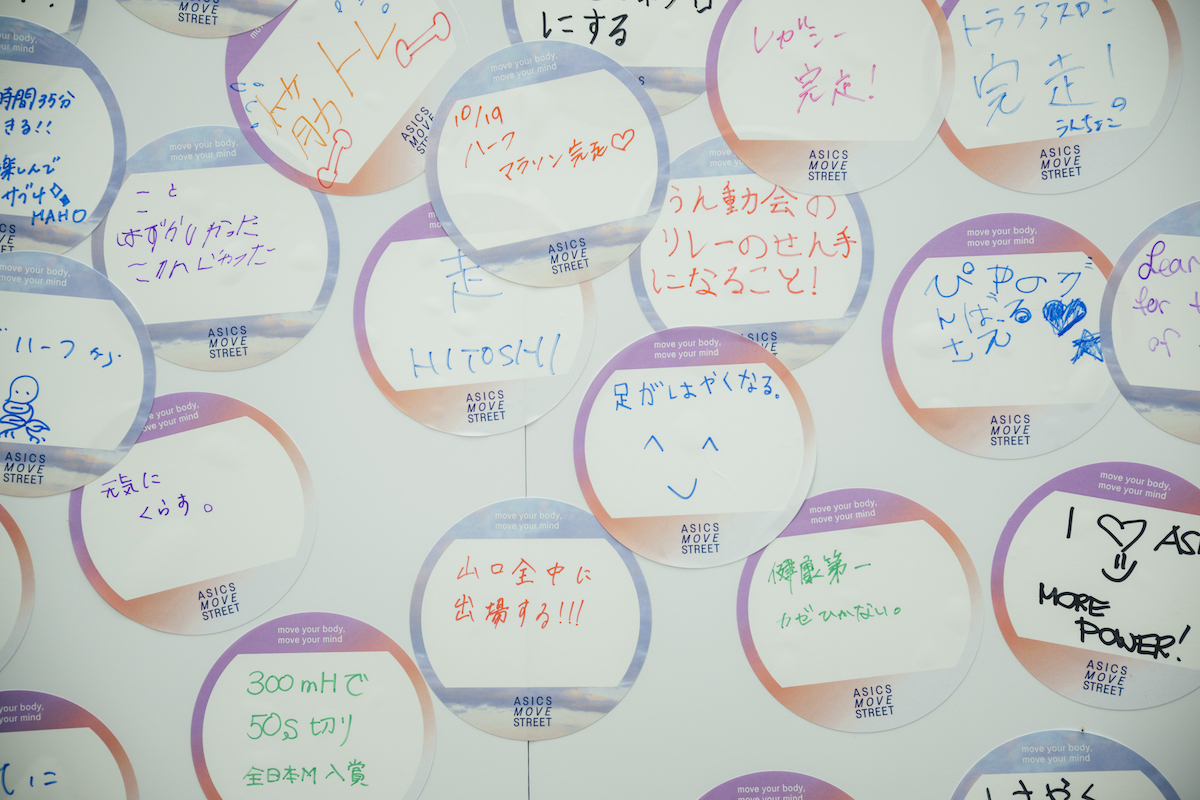 MOVE
STREET
にする
move your body,
move your mind
筋トレ
ASICS
MOVE
STREET
レガシー
完走!
ASICS
MOVE
STREET
完走!
ASICS
MOVE
STREET
時間35分
きる!!
楽しんで
サブ4
MAHO
move your body,
move your mind
10/19
ハーフ
マラソン完走♡
ASICS
MOVE
STREET
move your body,
move your mind
はずかしかった
ASICS
MOVE
STREET
走
HITOSHI
ASICS
MOVE
STREET
うん動会の
リレーのせん手
になること!
ASICS
move your body,
move your mind
ぴやのが
んばる
ASICS
MOVE
STREET
for
of
move your body,
move your mind
ハーフ
ASICS
MOVE
STREET
move your body,
move your mind
足がはやくなる。
ASICS
MOVE
STREET
move your body,
move your mind
元気に
くらす。
ASICS
MOVE
STREET
move your body,
move your mind
山口全中に
出場する!!!
ASICS
MOVE
STREET
move your body,
move your mind
健康第一
カゼひかない。
ASICS
MOVE
STREET
move your body,
move your mind
I ♡
MORE
POWER!
ASICS
MOVE
STREET
move your body,
move your mind
300mHで
50s切り
全日本M入賞
your body,
your mind
move your body,
move your mind
move your body,
move your mind